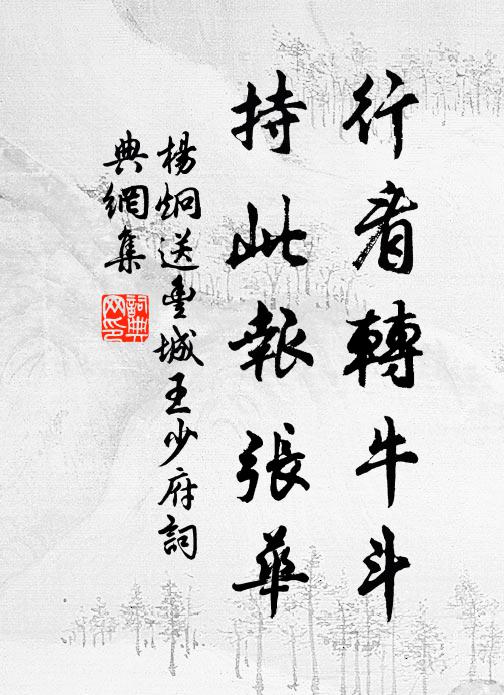 行看轉牛斗
持此報張華
楊炯送豐城王少府詞
典網集
詞典
网印